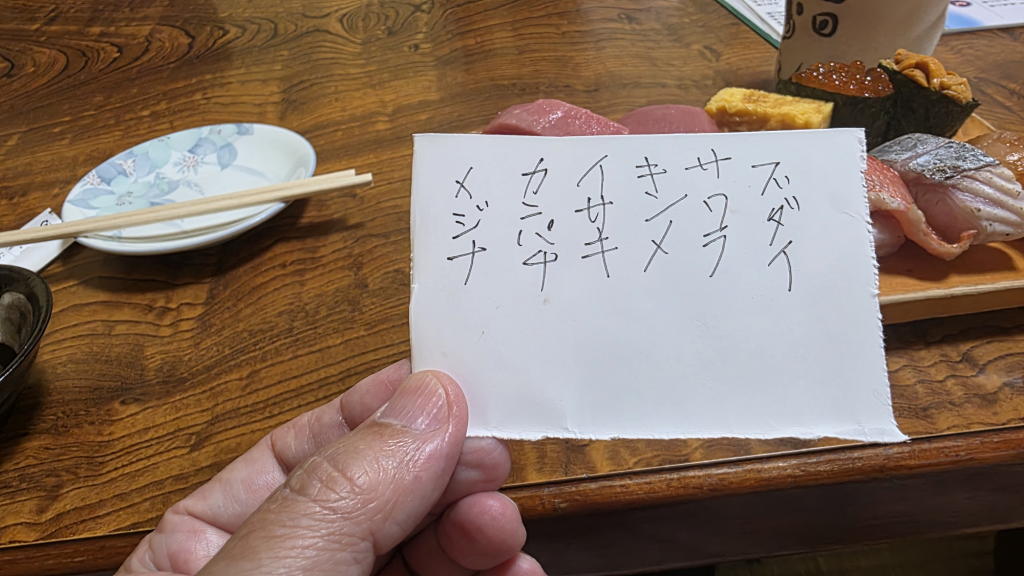 マダイ
サワラ
キンメ
イサキ
カンパチ
メジナ